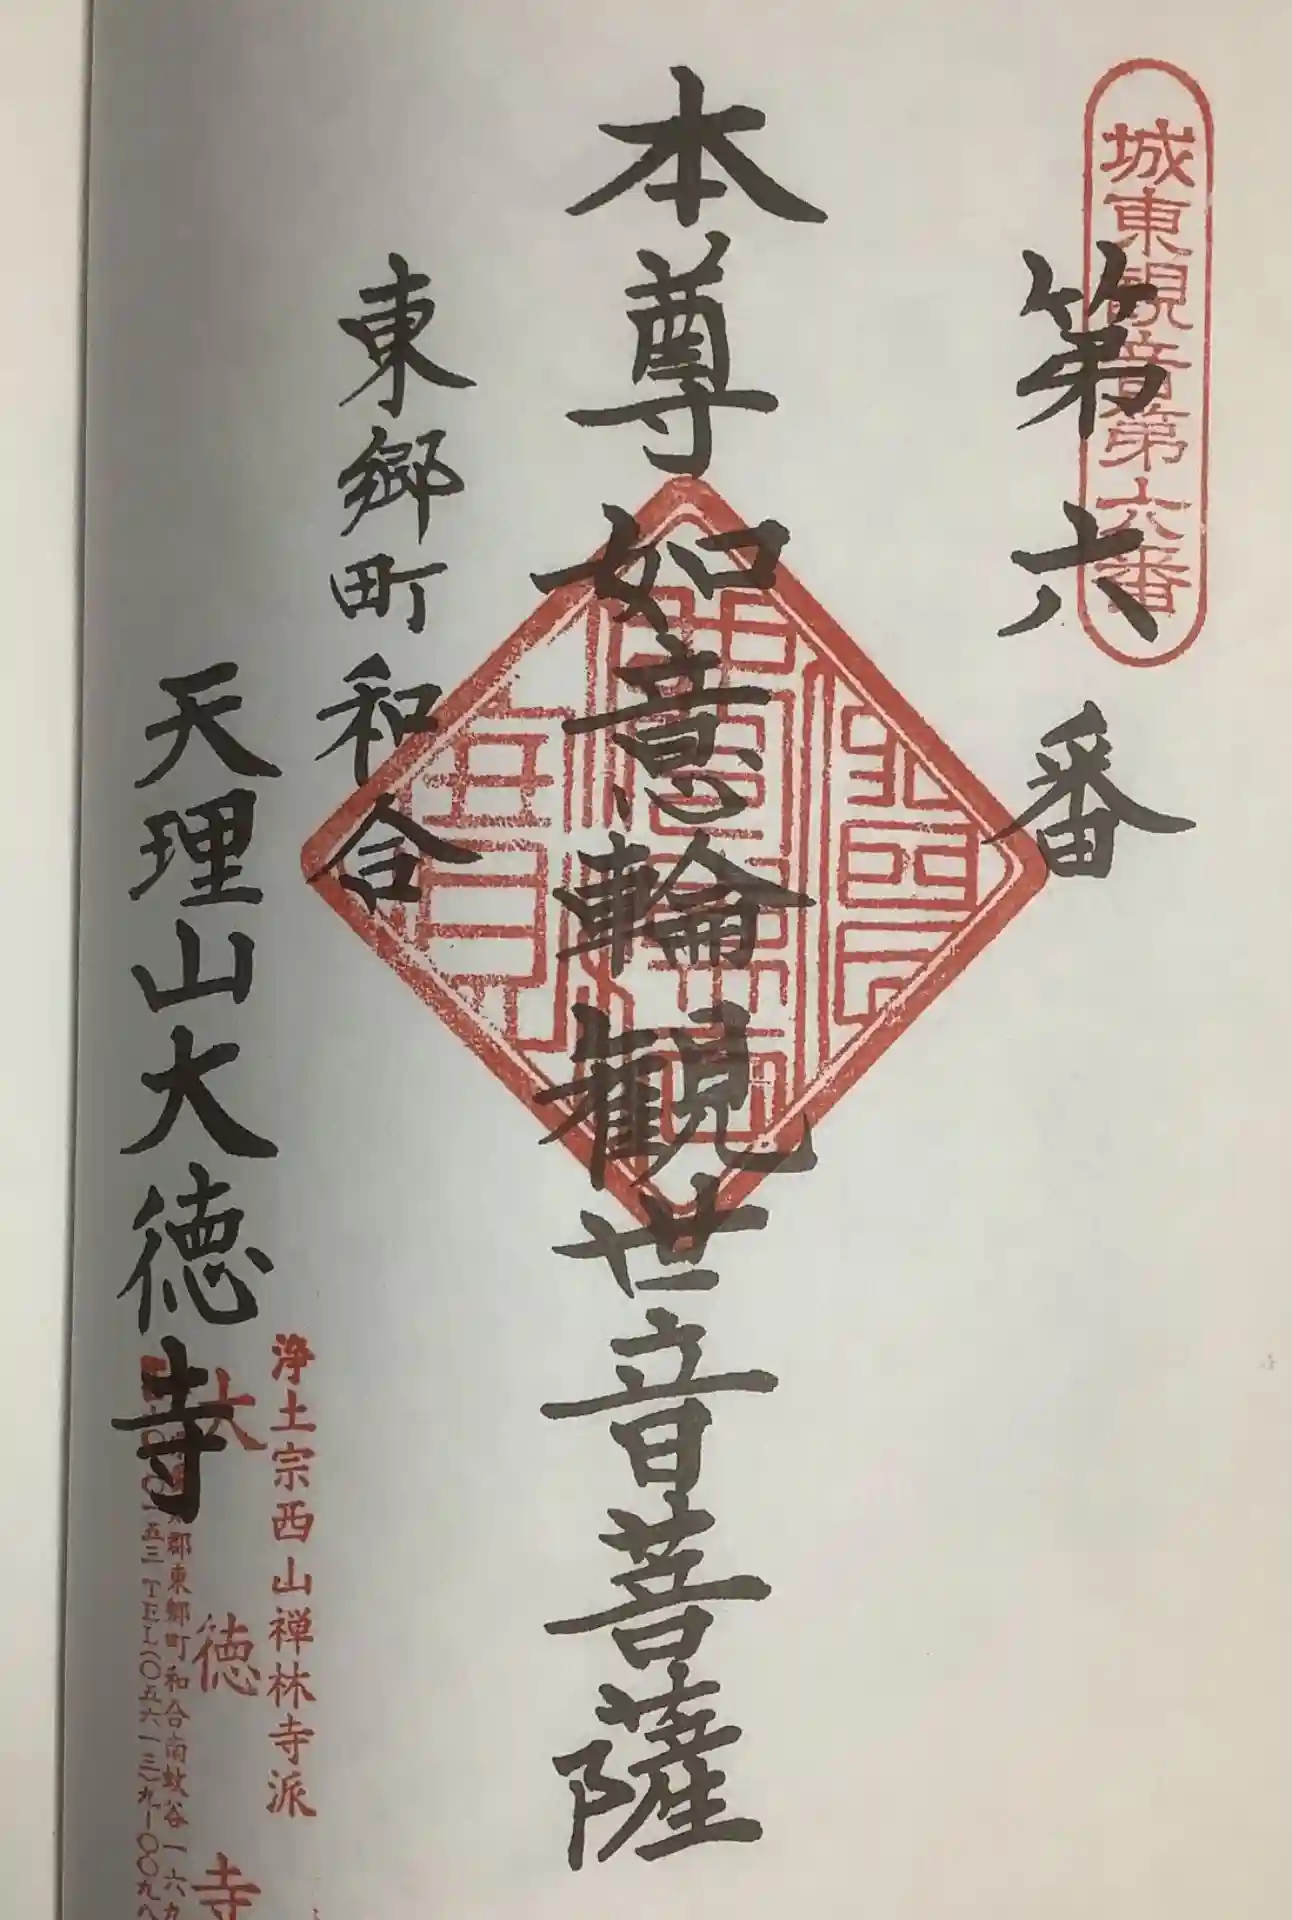 城東観音第六番
第六番
本尊如意輪観世音菩薩
東郷町和合
天理山大徳寺
浄土宗西山禅林寺派
大徳寺
郡東郷町和合南蚊谷一六九
一五三 TEL(〇五六一三)九-〇〇九八